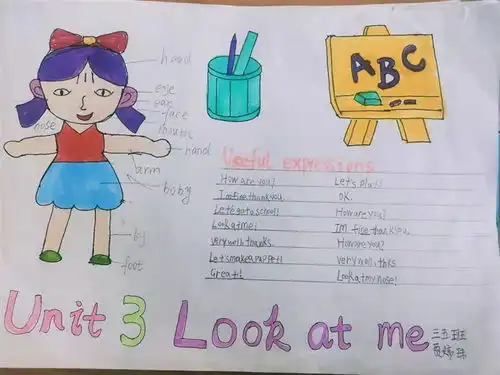 hand
eye
ear
face
mouth
nose
hand
arm
boby
foot
ABC
Useful expressions
How are you? Let's play!
I'm fine thank you. OK.
Let's go to school! How are you?
Look at me! I'M fine thank you.
very well thanks. How are you?
Let's make a puppet! very well, thks
Great! Look at my nose!
Unit 3 Look at me
三五班